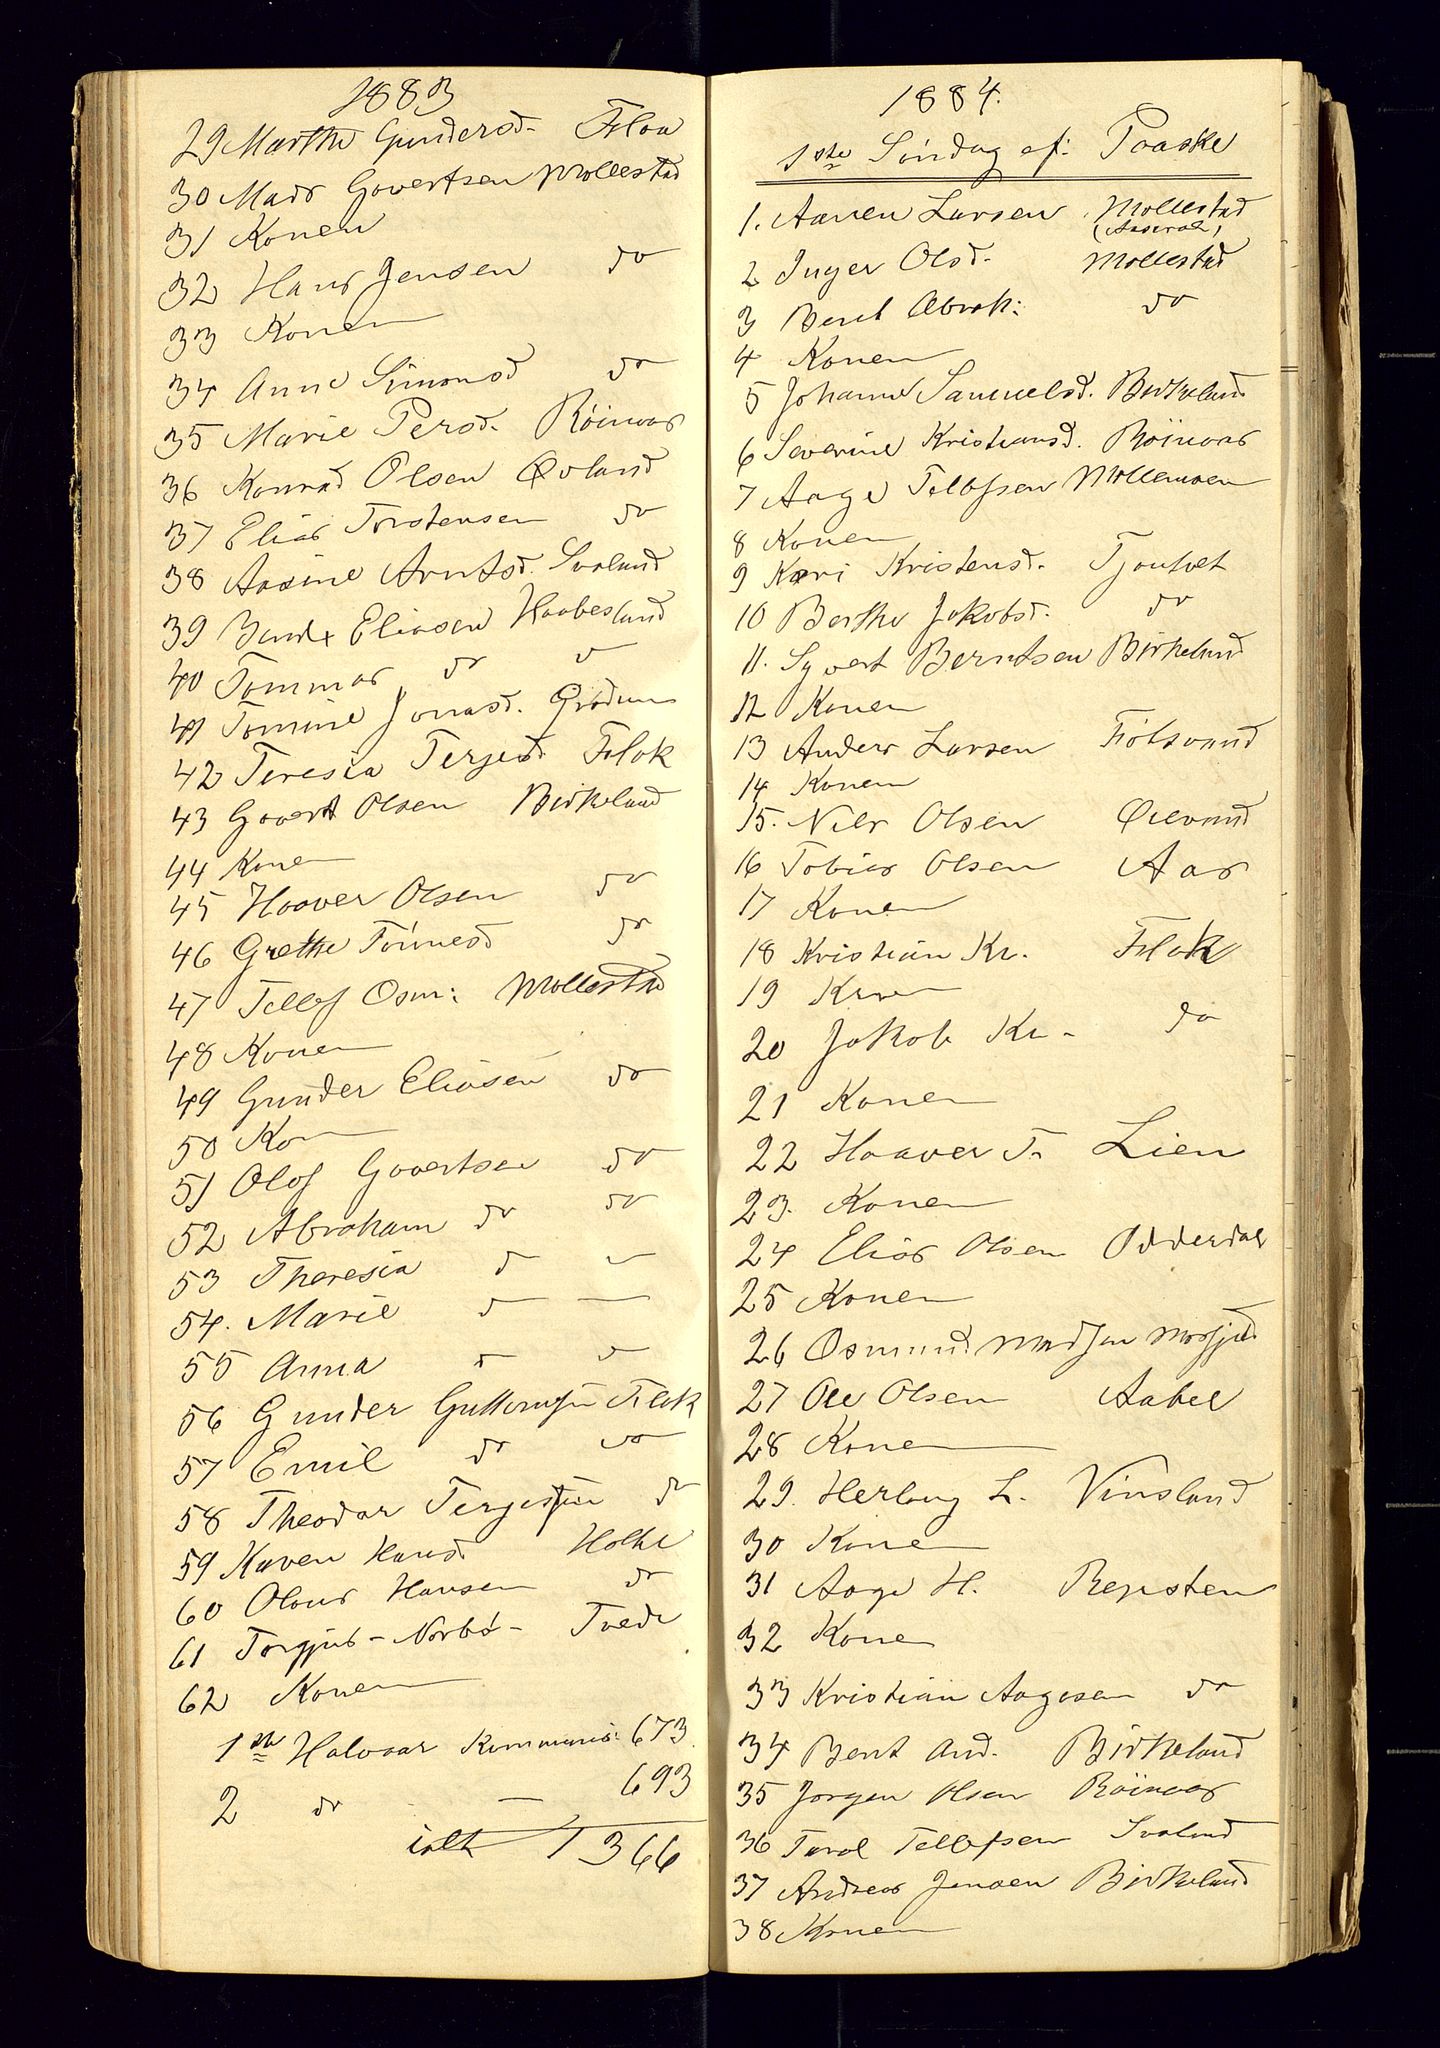 1883
29 Marthe Gundersd. Floa
30 Mads Govertsen Mollestad
31 Konen
32 Hans Jensen do
33 Konen
34 Anne Simonsd do
35 Marie Persd. Röinaas
36 Konrad Olsen Øvland
37 Elias Torstensen do
38 Aasine Arntsd. Svaland
39 Eliasen Haabesland
40 Tommas do
41 Tomine Jonasd.
42 Teresia Terjesd Flak
43 Govert Olsen Birkeland
44 Kone
45 Haaver Olsen do
46 Grethe Tönnesd do
47 Tellef Osm: Mollestad
48 Konen
49 Gunder Eliasen do
50 Kon
51 Olof Govertsen do
52 Abraham do do
53 Theresia d
54. Marie d
55 Anna d
56 Gunder Guttormsen Flak
57 Emil do do
58 Theodor Terjesen do
59 Karen Hansd Holte
60 Olaus Hansen do
61 Torgjus - Norbö - Tvede
62 Konen
1ste Halvaar Kommunis: 673.
2 do — 693
ialt 1366
1884.
1ste Söndag ef: Paaske
1. Aanen Larsen Mollestad
(Aaseral)
2 Inger Olsd. Mollestad
3 Beret Abrah: do
4 Konen
5 Johanne Samuelsd. Birkeland
6 Severine Kristiansd. Röinaas
7 Aage Tellefsen Mollemoen
8 Konen
9 Kari Kristensd. Tjontvet
10 Berthe Jakobsd. do
11. Syvert Berntsen Birkeland
12 Konen
13 Anders Larsen
14 Konen
15. Niels Olsen
16 Tobias Olsen Aas
17 Konen
18 Kristian Kr. Flak
19 Kone
20 Jakob Kr. do
21 Konen
22 Haaver T. Lien
23. Konen
24 Elias Olsen Odderdal
25 Konen
26 Osmund Madsen
27 Ole Olsen Aabel
28 Konen
29. Herlaug L. Vinsland
30 Konen
31 Aage H. Repsten
32 Konen
33 Kristian Aagesen do
34 Bent And. Birkeland
35 Jorgen Olsen Röinaas
36 Tarol Tellefsen Svaland
37 Andreas Jensen Birkeland
38 Konen